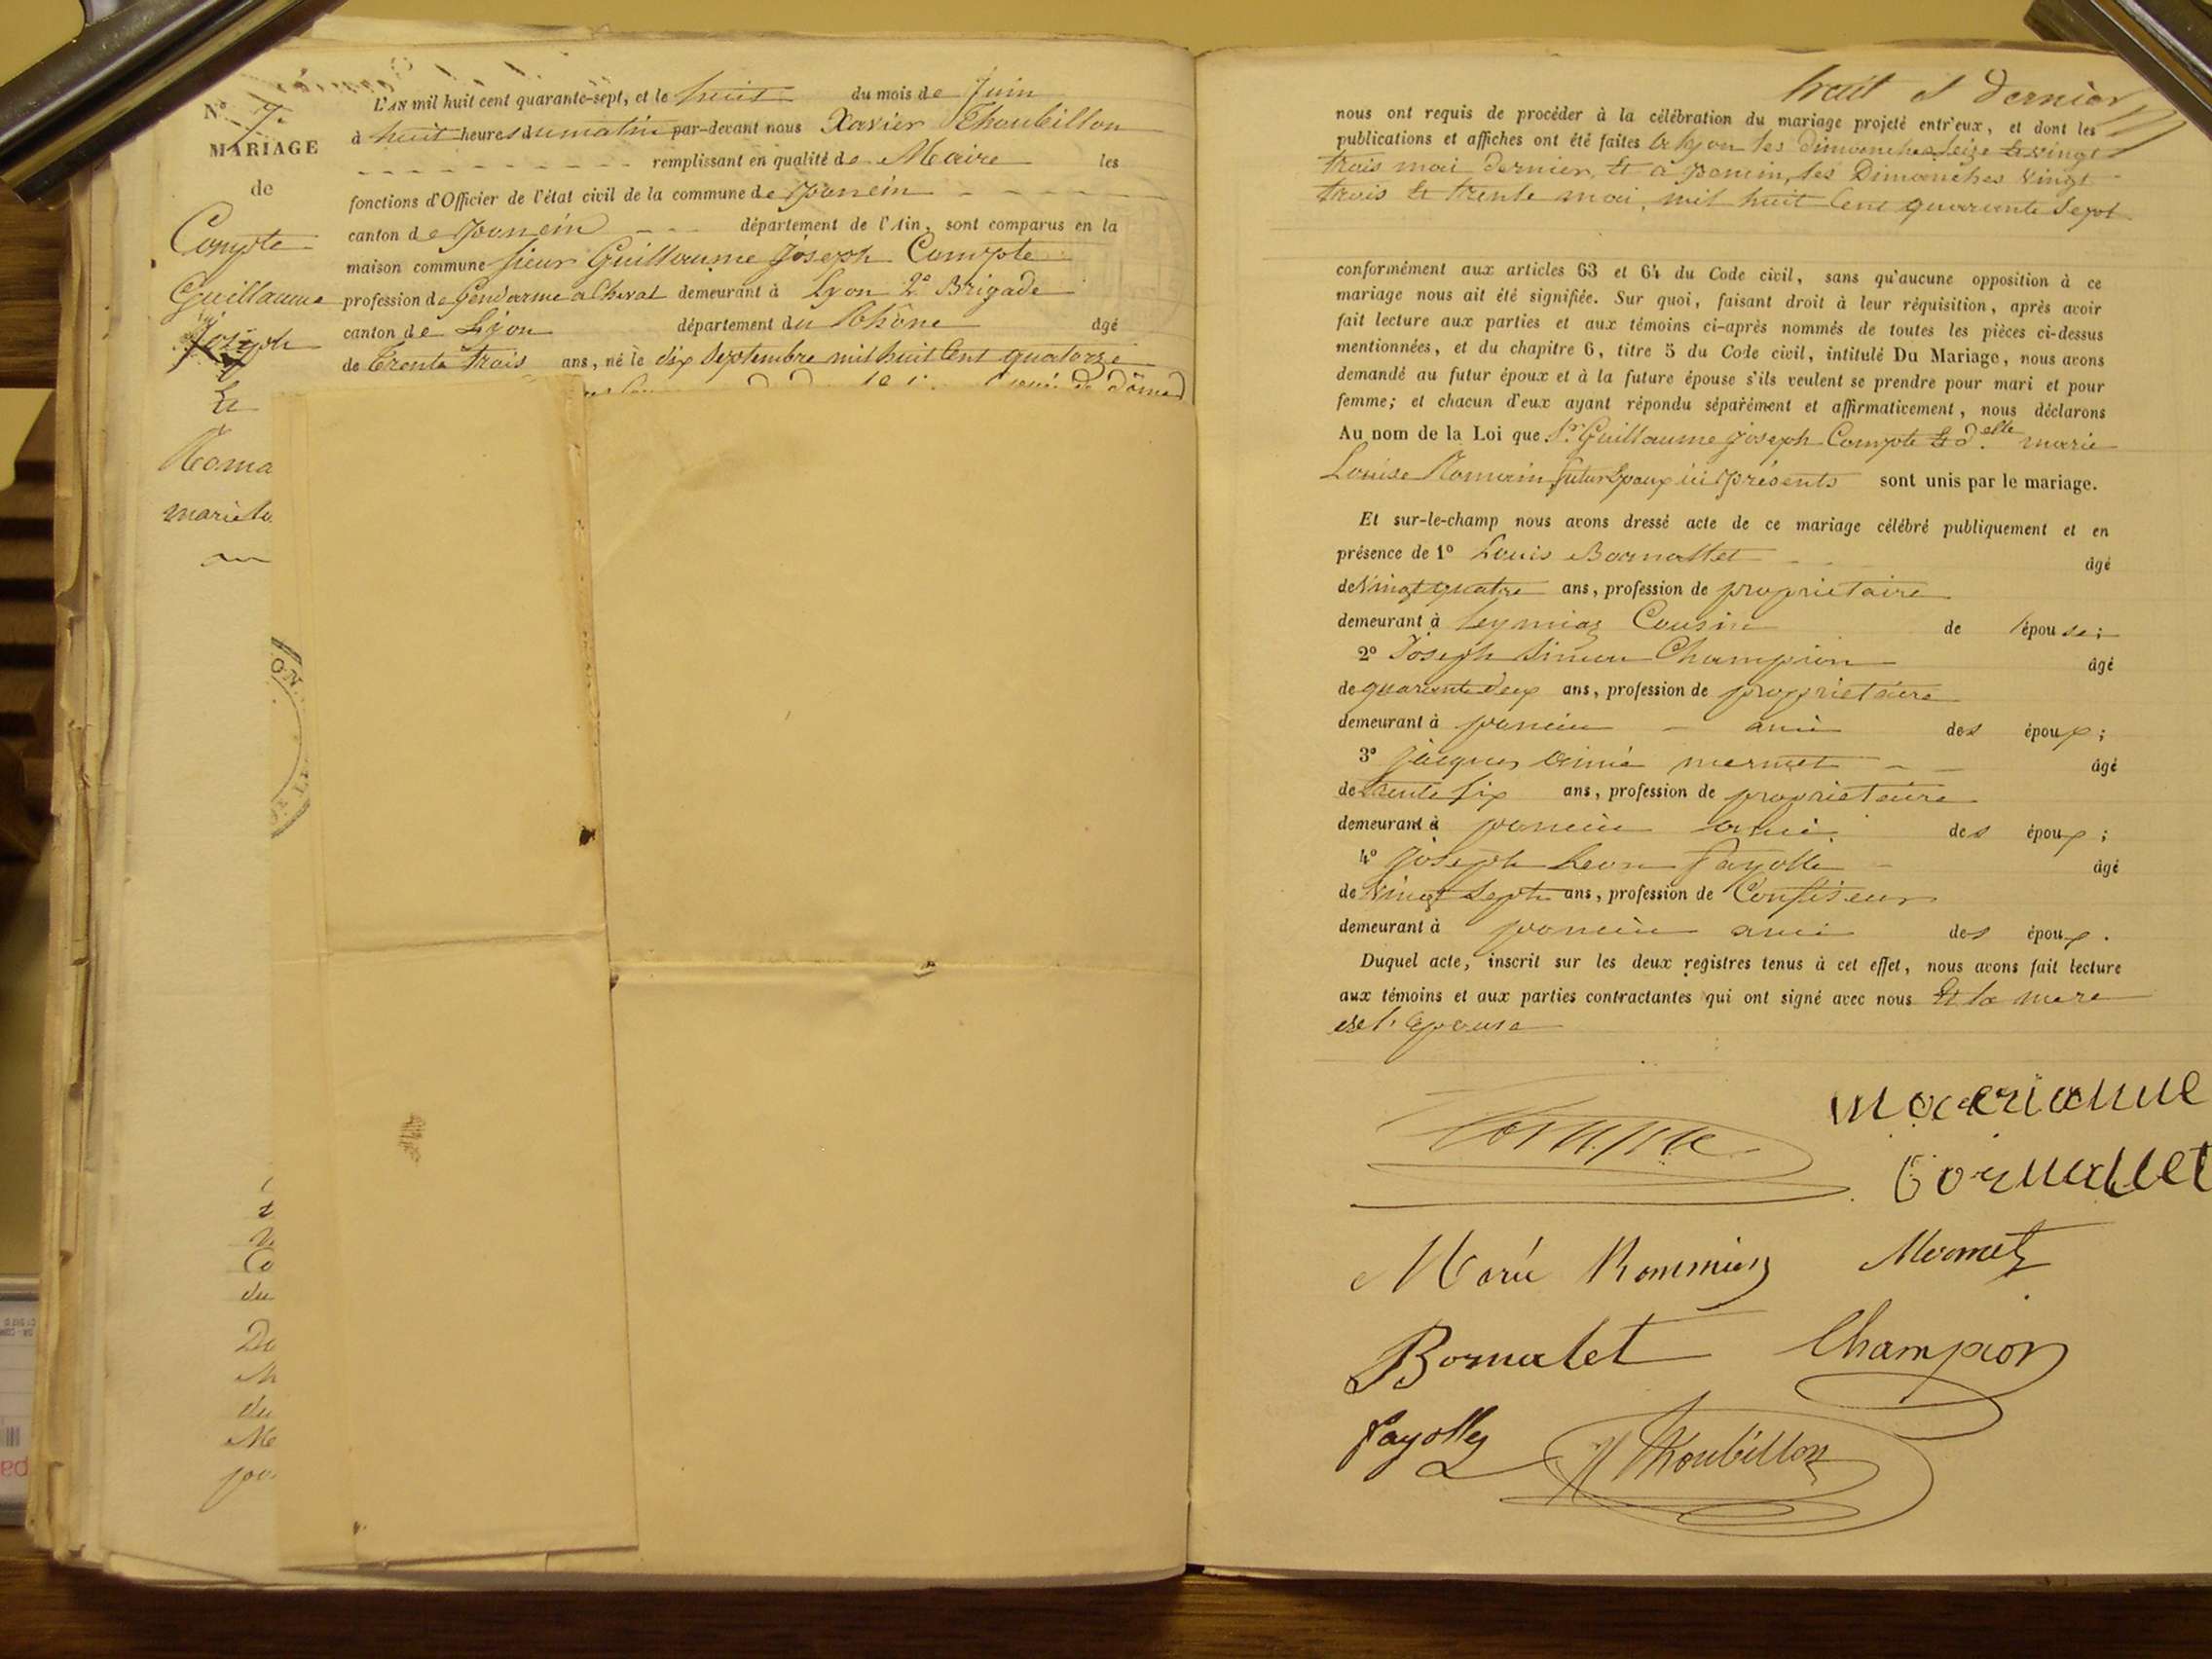 N.° 7.
MARIAGE
de
Compte
Guillaume
Joseph
Et
Roma
marie lo
L'AN mil huit cent quarante-sept, et le huit du mois de Juin
à huit heures du matin par-devant nous Xavier Thoubillon
remplissant en qualité de Maire les
fonctions d'Officier de l'état civil de la commune de poncin
canton de poncin département de l'Ain, sont comparus en la
maison commune sieur Guillaume joseph Compte
profession de Gendarme a Cheval demeurant à Lyon 2e Brigade
canton de Lyon département du Rhone âgé
de trente trois ans, né le dix septembre mil huit Cent quatorze
ON.
Co
du
De
M
du
Me
huit et dernier
nous ont requis de procéder à la célébration du mariage projeté entr'eux, et dont les
publications et affiches ont été faites a Lyon les dimanches seize et vingt
trois mai dernier, et a poncin, les Dimanches vingt
trois et trente mai, mil huit Cent quarante Sept
conformément aux articles 63 et 64 du Code civil, sans qu'aucune opposition à ce
mariage nous ait été signifiée. Sur quoi, faisant droit à leur réquisition, après avoir
fait lecture aux parties et aux témoins ci-après nommés de toutes les pièces ci-dessus
mentionnées, et du chapitre 6, titre 5 du Code civil, intitulé Du Mariage, nous avons
demandé au futur époux et à la future épouse s'ils veulent se prendre pour mari et pour
femme; et chacun d'eux ayant répondu séparément et affirmativement, nous déclarons
Au nom de la Loi que Sr. Guillaume joseph Compte et Delle marie
Louise Romain futur Epoux ici présents sont unis par le mariage.
Et sur-le-champ nous avons dressé acte de ce mariage célébré publiquement et en
présence de 1° Louis Bornattet âgé
de vingt quatre ans, profession de proprietaire
demeurant à Leymiaz Cousin de l'épouse;
2° Joseph Simon Champion âgé
de quarante deux ans, profession de proprietaire
demeurant à poncin ami des époux;
3° jacques aimé mermet âgé
de trente six ans, profession de proprietaire
demeurant à poncin ami des époux;
4° joseph Leon fayolle âgé
de vingt Sept ans, profession de Confiseur
demeurant à poncin ami des époux.
Duquel acte, inscrit sur les deux registres tenus à cet effet, nous avons fait lecture
aux témoins et aux parties contractantes qui ont signé avec nous Et la mere
de l'epouse
Compte
Marie Mermet
Bornatet Champion
fayolle Thoubillon